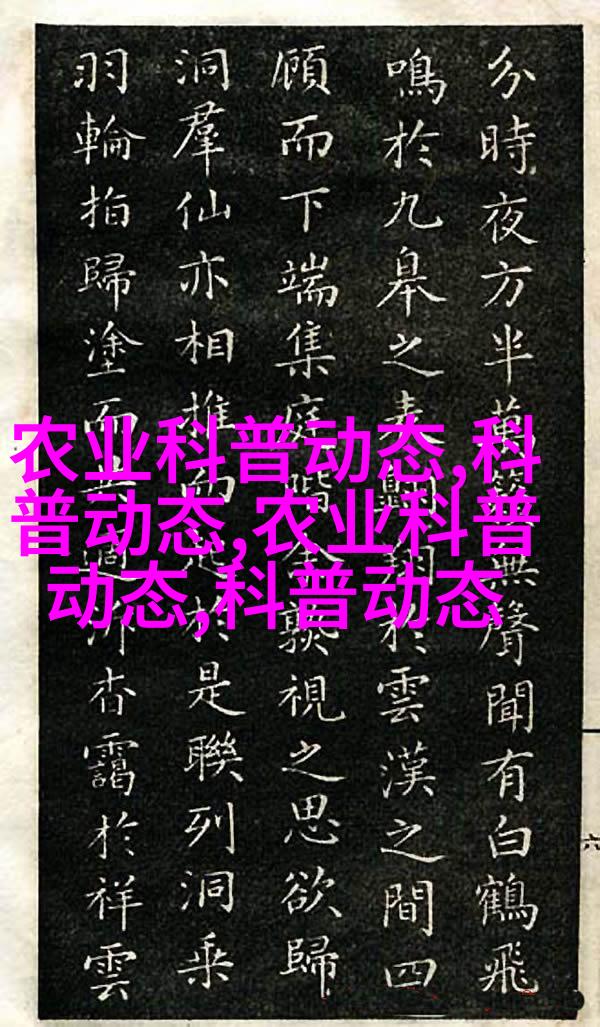 分時夜方半萬無聲聞有白鶴飛
鳴於九皋之表翔於雲漢之間四
顧而下端集庭階視之思欲歸
洞羣仙亦相推而起於是聯列洞乘
羽輪拍歸塗而杳靄於祥雲
农业科普动态,科
普动态,农业科普
动态,科普动态
六